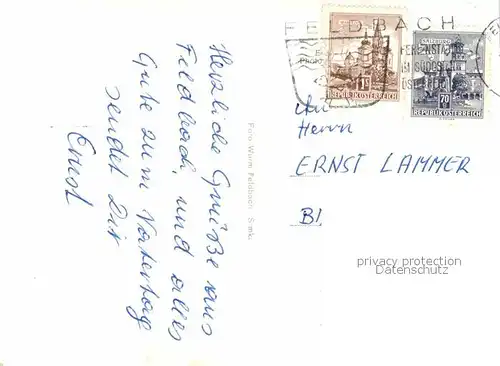 Herzliche Grüße aus
Feldbach, und alles
Gute zum Vatertag
sendet Dir
Ernst
Foto Wurm Feldbach S.mk.
FELDBACH
FERIENSTADT
REPUBLIK ÖSTERREICH
SALZBURG
70
REPUBLIK ÖSTERREICH
An
Herrn
ERNST LAMMER
privacy protection
Datenschutz